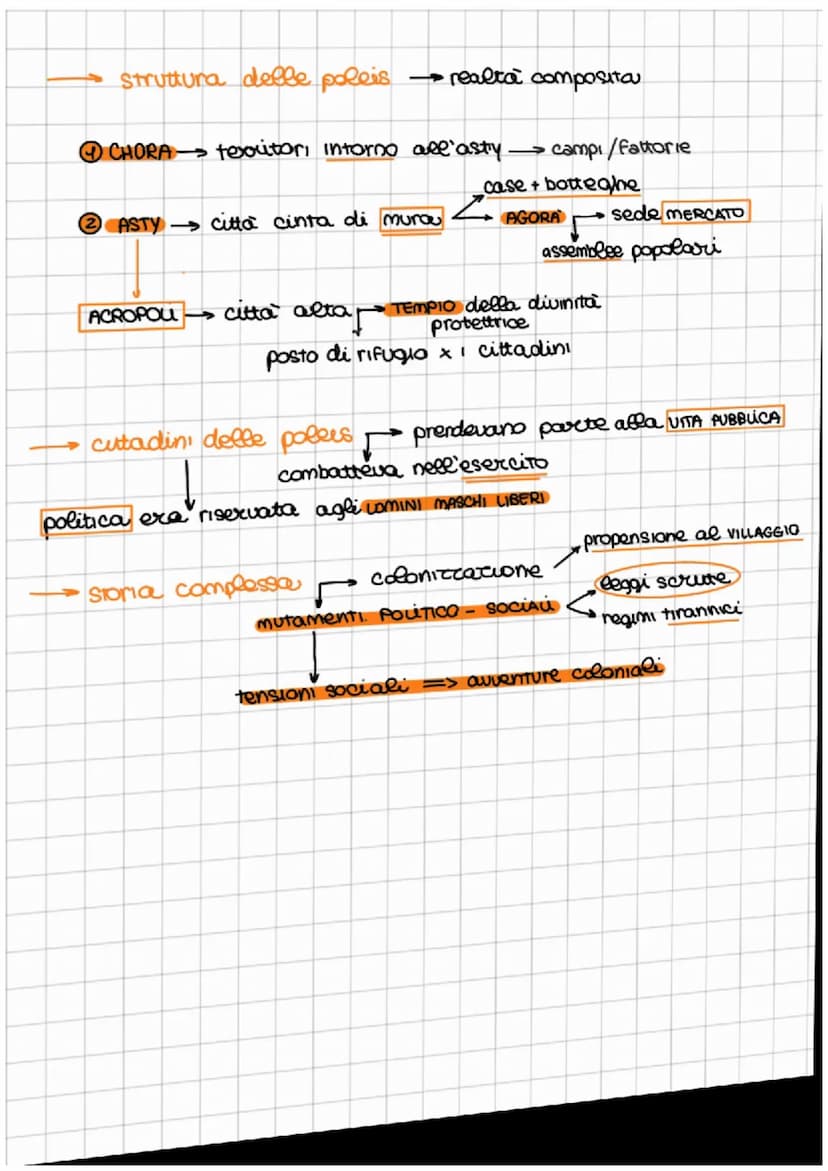 → struttura delle poleis → realtà composita
① CHORA → territori intorno all'asty → campi/fattorie
case + botteghe
② ASTY → città cinta di mura → AGORÀ → sede MERCATO
assemblee popolari
ACROPOLI → città alta → TEMPIO della divinità
protettrice
posto di rifugio x i cittadini
→ cittadini delle poleis → prendevano parte alla VITA PUBBLICA
combatteva nell'esercito
politica era riservata agli UOMINI MASCHI LIBERI
propensione al VILLAGGIO
→ storia complessa → colonizzazione
leggi scritte
mutamenti POLITICO - SOCIALI
regimi tirannici
tensioni sociali => avventure coloniali